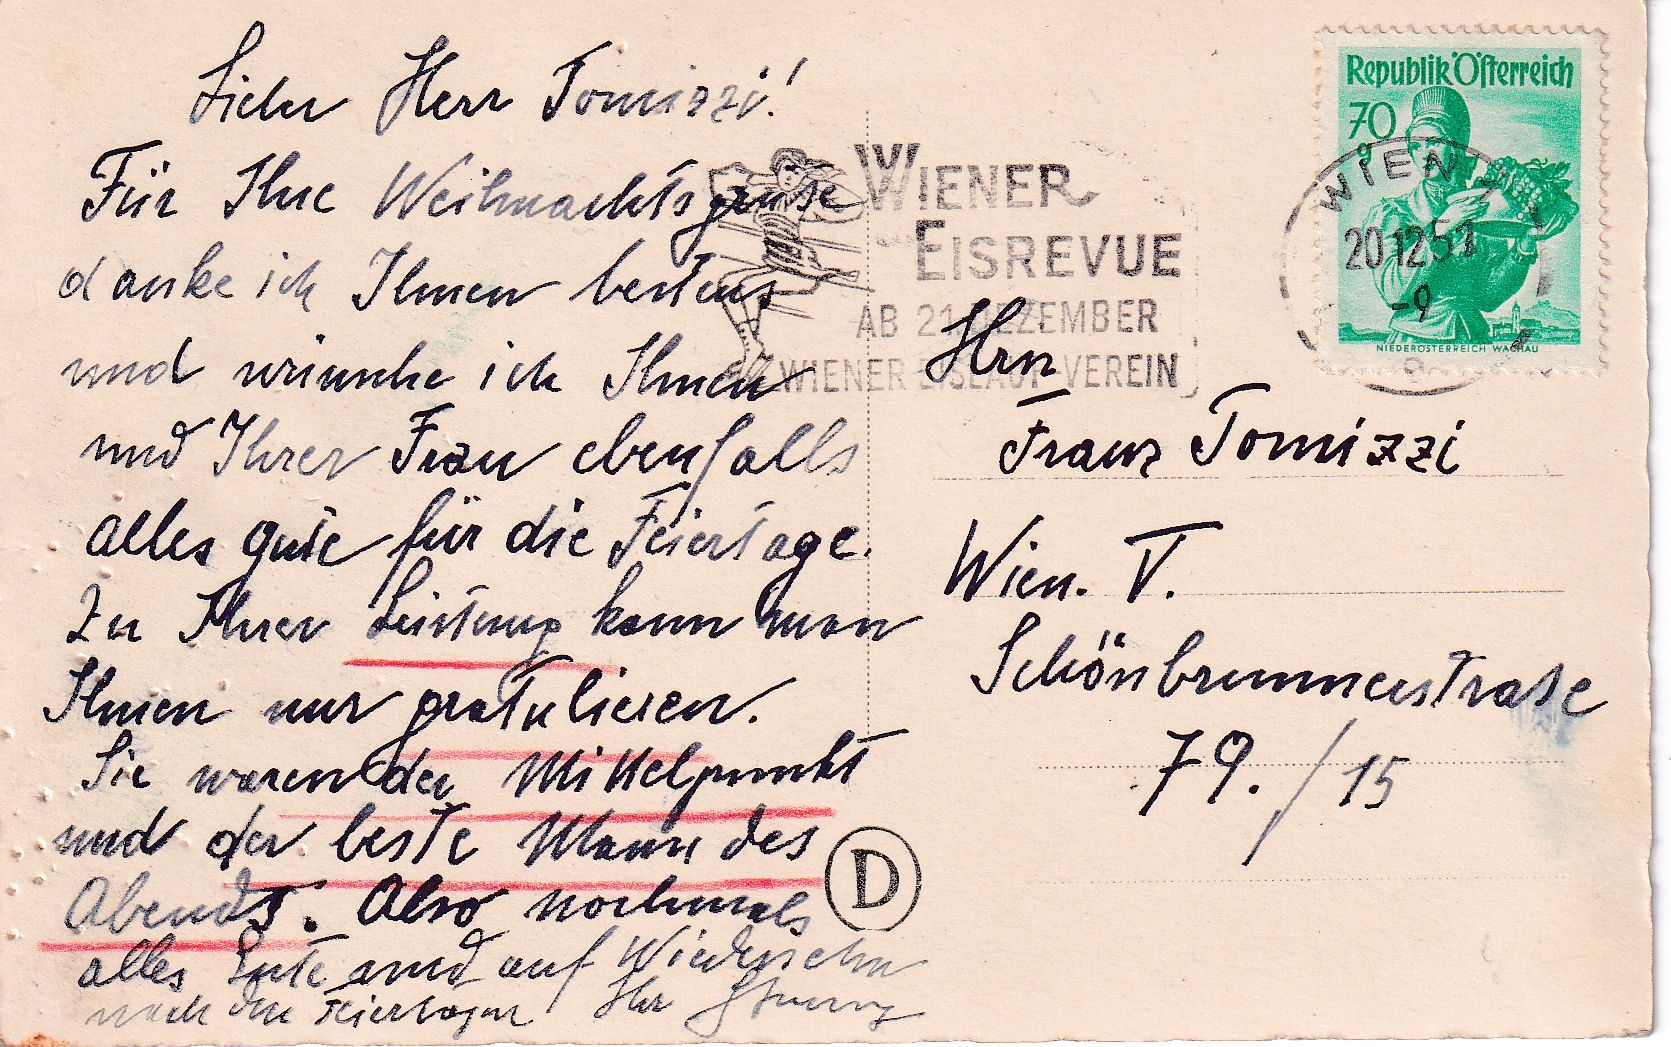 Lieber Herr Tomizzi!
Für Ihre Weihnachtsgrüße
danke ich Ihnen bestens
und wünsche ich Ihnen
und Ihrer Frau ebenfalls
alles gute für die Feiertage.
Zu Ihrer Leistung kann man
Ihnen nur gratulieren.
Sie waren der Mittelpunkt
und der beste Mann des
Abends. Also nochmals
alles Gute und auf Wiedersehn
nach den Feiertagen Ihr
D
WIENER
EISREVUE
AB 21. DEZEMBER
WIENER EISLAUF VEREIN
Republik Österreich
70
g
WIEN
20.12.51
-9
NIEDERÖSTERREICH WACHAU
Hrn
Franz Tomizzi
Wien. V.
Schönbrunnerstraße
79./15